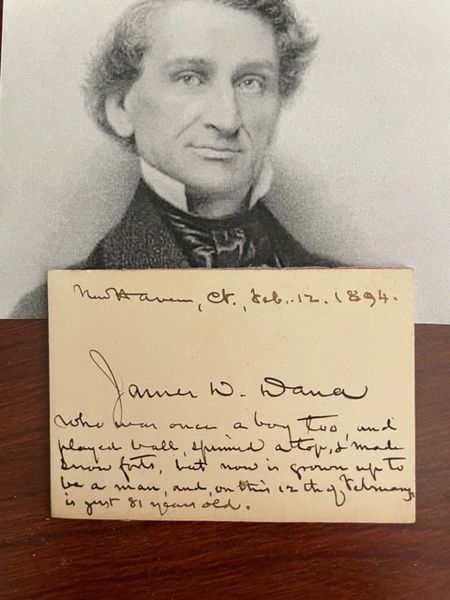 New Haven, Ct., Feb. 12. 1894.
James D. Dana
who was once a boy too, and
played ball, spinn'd a top, & made
snow forts, but now is grown up to
be a man, and, on this 12th of February,
is just 81 years old.